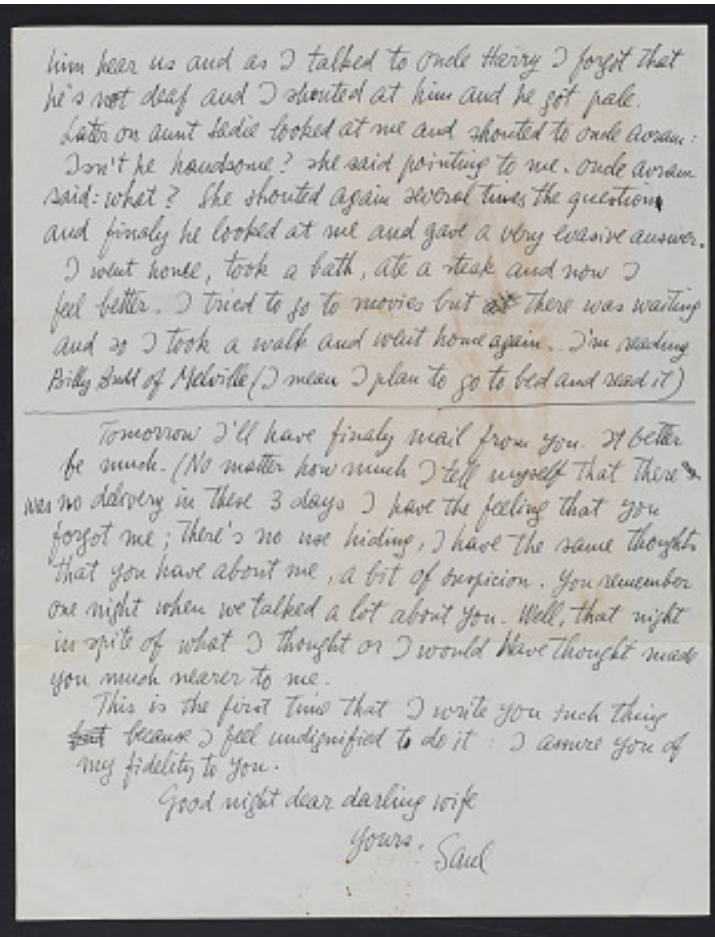 him hear us and as I talked to oncle Harry I forgot that
he's not deaf and I shouted at him and he got pale.
Later on aunt Sadie looked at me and shouted to oncle avram:
Isn't he handsome? she said pointing to me. oncle avram
said: what? She shouted again several times the question
and finaly he looked at me and gave a very evasive answer.
I went home, took a bath, ate a steak and now I
feel better. I tried to go to movies but there was waiting
and so I took a walk and went home again. I'm reading
Billy Budd of Melville (I mean I plan to go to bed and read it)
Tomorrow I'll have finaly mail from you. It better
be much. (No matter how much I tell myself that there
was no delivery in these 3 days I have the feeling that you
forgot me; there's no use hiding, I have the same thoughts
that you have about me, a bit of suspicion. You remember
one night when we talked a lot about you. Well, that night
in spite of what I thought or I would have thought made
you much nearer to me.
This is the first time that I write you such thing
but because I feel undignified to do it: I assure you of
my fidelity to you.
Good night dear darling wife
yours,
Saul